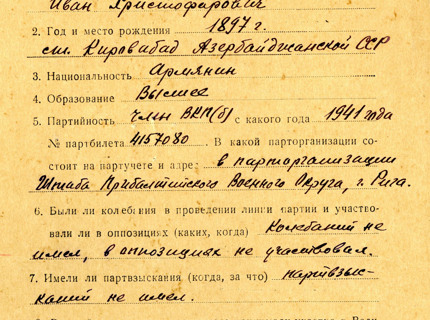 Иван Христофорович
2. Год и место рождения 1897 г.
ст. Кировабад Азербайджанской ССР
3. Национальность Армянин
4. Образование Высшее
5. Партийность член ВКП(б) с какого года 1941 года
№ партбилета 4157080. В какой парторганизации со-
стоит на партучете и адрес в парторганизации
Штаба Прибалтийского Военного Округа, г. Рига.
6. Были ли колебания в проведении линии партии и участво-
вали ли в оппозициях (каких, когда) Колебаний не
имел, в оппозициях не участвовал.
7. Имели ли партвзыскания (когда, за что) партвзыс-
каний не имел.